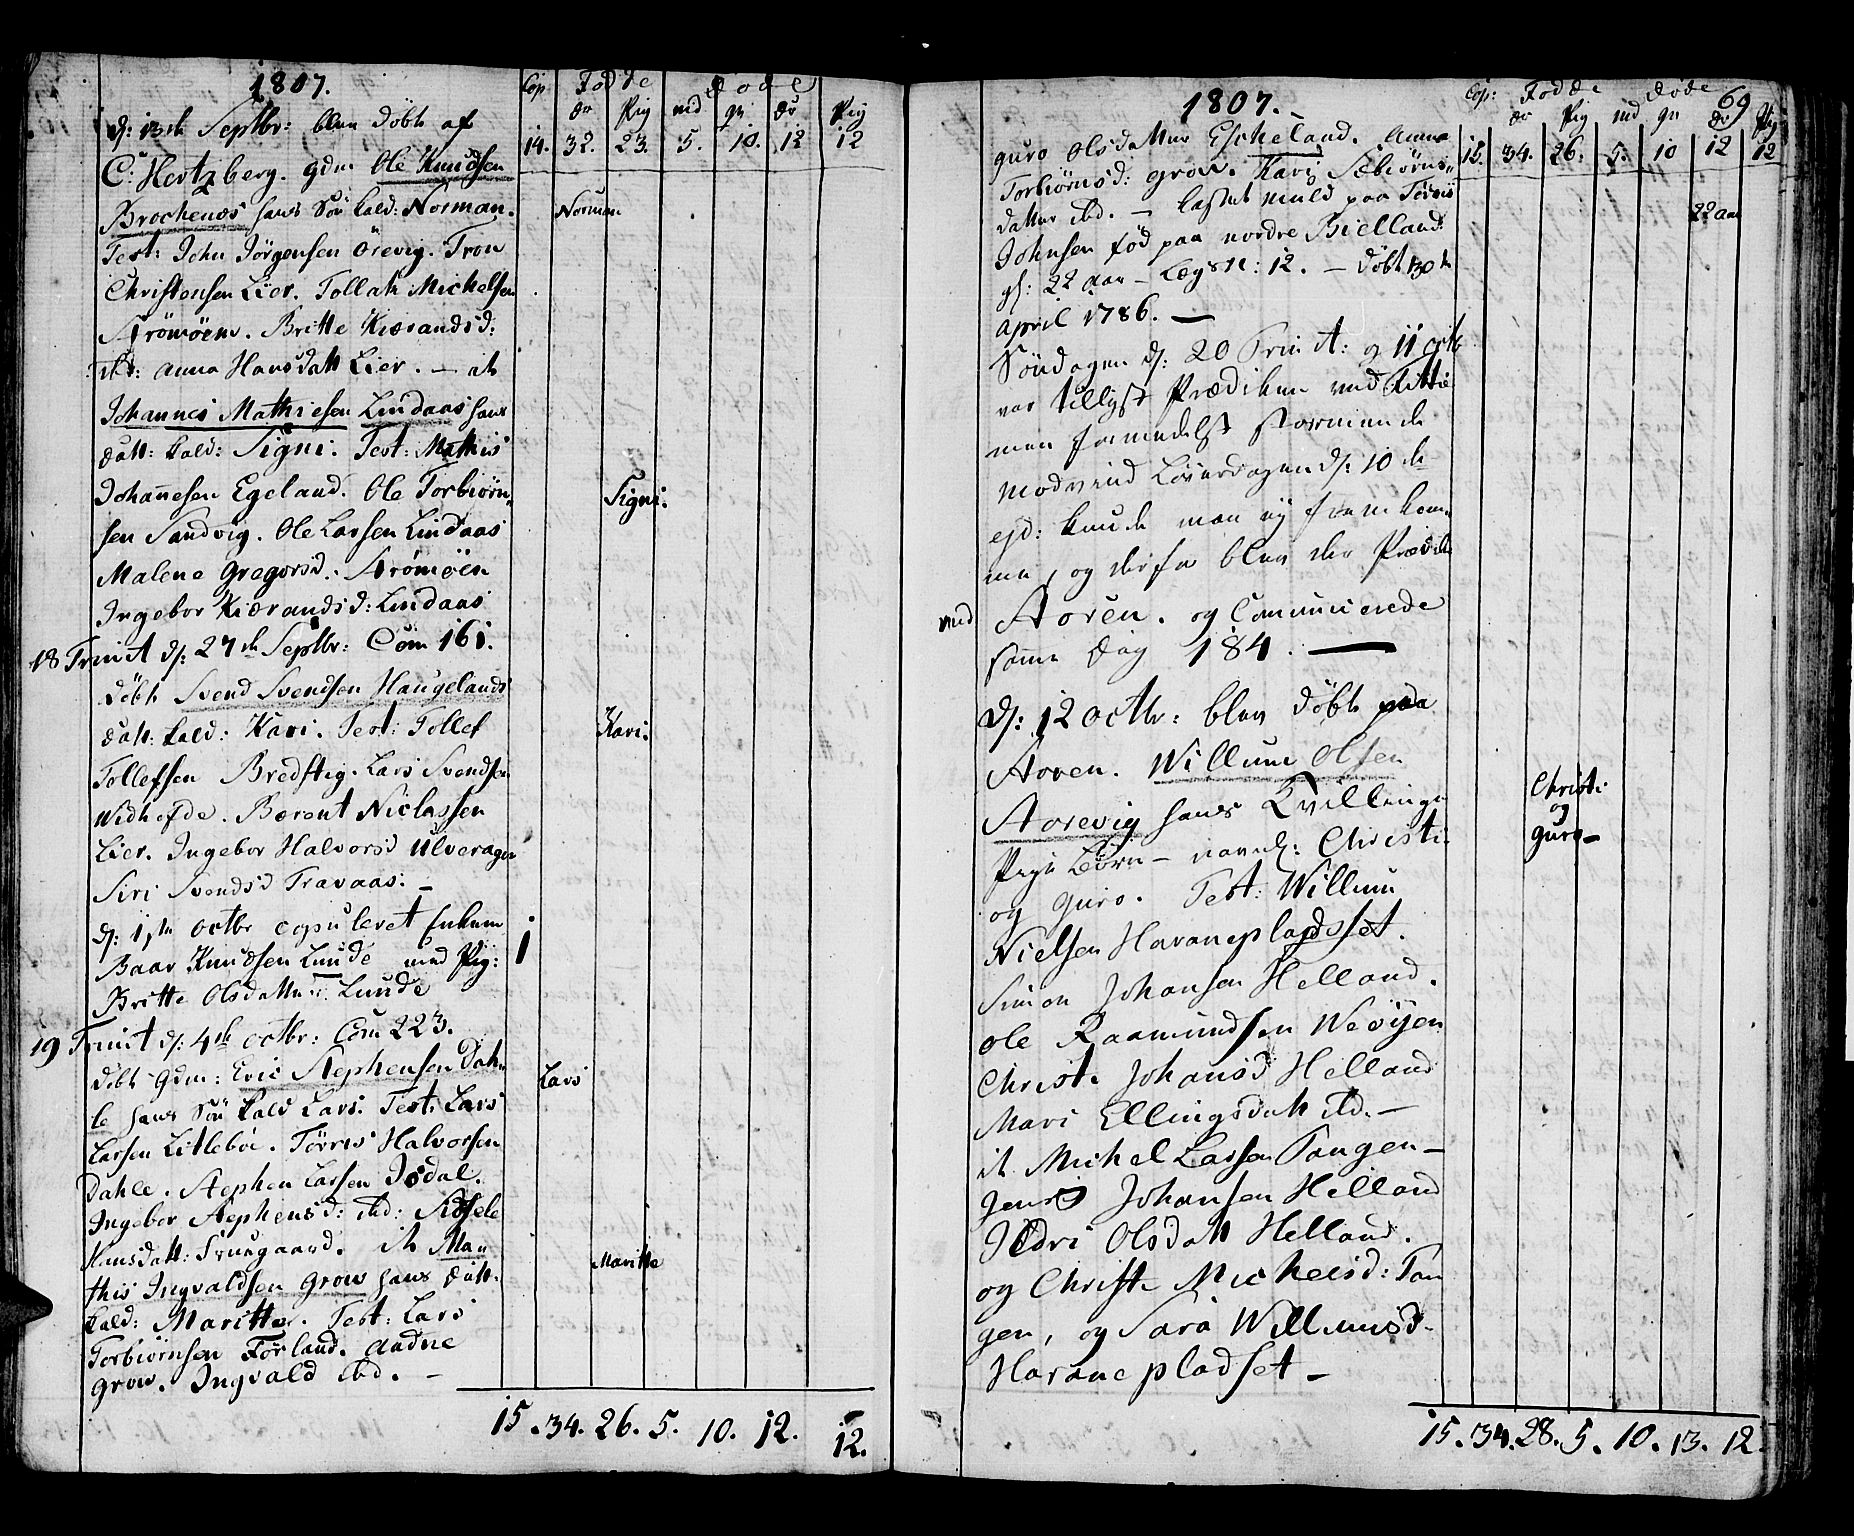 1807.
Cop Fødde døde
dr Pig md qv dr Pig
14. 32. 23. 5. 10. 12 12
d: 13de Septbr: blev døbt af
C: Hertzberg. gdm Ole Knudsen
Brochenæs hans Søn kald: Norman.
Norman
Test: John Jörgensen Örevig. Tron
Christensen Lier. Tollak Michelsen
Strömöen. Britte Kierandsd:
ibd: Anna Hansdatt Lier. — it
Johannes Mathiesen Lindaas hans
datt: kald: Signi. Test: Mathis
Johanesen Egeland. Ole Torbiörn„
Signi.
sen Sandvig. Ole Larsen Lindaas
Malene Gregorsd: Strömöen
Ingebor Kierandsd: Lindaas
18 Trinit d: 27de Septbr: Com 161.
døbt Svend Svendsen Haugelands
datt: kald: Kari. Test: Tollef
Kari.
Tollefsen Bredstig. Lars Svendsen
Widhefde. Berent Niclassen
Lier. Ingebor Halvorsd Ulveragen
Siri Svendsd Travaas. —
d: 1ste octbr copuleret Enkem
Baar Knudsen Lunde med Pig:
1
Britte Olsdatter Lunde
19 Trinit d: 4de octbr: Com 223.
døbt gdm: Eric Stephensen Dah„
Lars
le hans Søn kald Lars. Test: Lars
Larsen Litleböe. Törres Halvorsen
Dahle. Stephen Larsen Isdal.
Ingebor Stephensd: ibd: Sidsele
Hansdatt: Prusgaard. it Ma„
this Ingvaldsen Grow hans datt:
Maritte
kald: Maritte. Test: Lars
Torbiörnsen Förland. Aadne
Grow. Ingvald ibd. —
15. 34. 26. 5. 10. 12. 12.
1807.
69
Cop: Fødde døde
dr Pig md qv dr Pig
15. 34. 26. 5. 10 12 12
guro Olsdatter Eskeland. Anna
Torbiörnsd: grow. Kari Sæbiörns„
datter ibd. — kastet muld paa Törris
22 aar
Johnsen född paa nordre Bielland
gl: 22 aar — Lægs N: 12. — døbt 30te
april 1786. —
Söndagen d: 20 Trinit: og 11 octb
var tillyst Prædiken ved Fittie
men formedelst stormende
modvind Löverdagen d: 10de
ejd: kunde man ej frem kom„
me, og derfor blev der Prædik
ned Storen. og Comunicerede
same dag 184. —
d: 12 octbr: blev døbt paa
Storen. Willum Olsen
Storevig hans Tvillinge
Christi
og
guro —
Pige Börn — navnl: Christi
og Guro. Test: Willum
Nielsen Havnepladsset.
Simon Johansen Helland.
Ole Raamundsen Weöyen
Christi Johansd Helland
Mari Ellingsdatt ibd. —
it Michel Larsen Tangen —
Jens Johansen Helland
Jldri Olsdatt Helland.
og Christi Michelsd: Tan
gen, og Sara Willumsd.
Havnepladset —
15. 34. 28. 5. 10. 13. 12